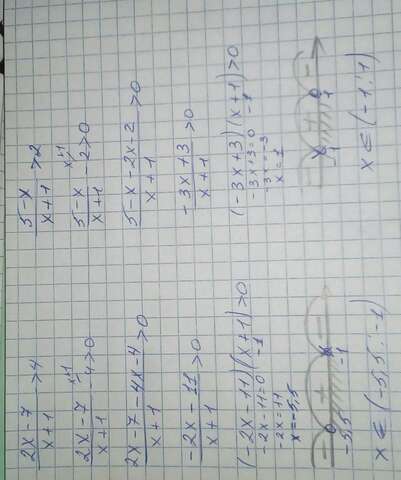 2x-7/x+1 >4
2x-7/x+1 -4>0 x+1
2x-7-4x-4/x+1 >0
-2x-11/x+1 >0
(-2x-11)(x+1)>0
-2x-11=0 -1
-2x=11
x=-5,5
- + -
-5,5 -1
x∈(-5,5;-1)
5-x/x+1 >2
5-x/x+1 -2>0 x+1
5-x-2x-2/x+1 >0
-3x+3/x+1 >0
(-3x+3)(x+1)>0
-3x+3=0 -1
-3x=-3
x=1
- + -
-1 1
x∈(-1;1)